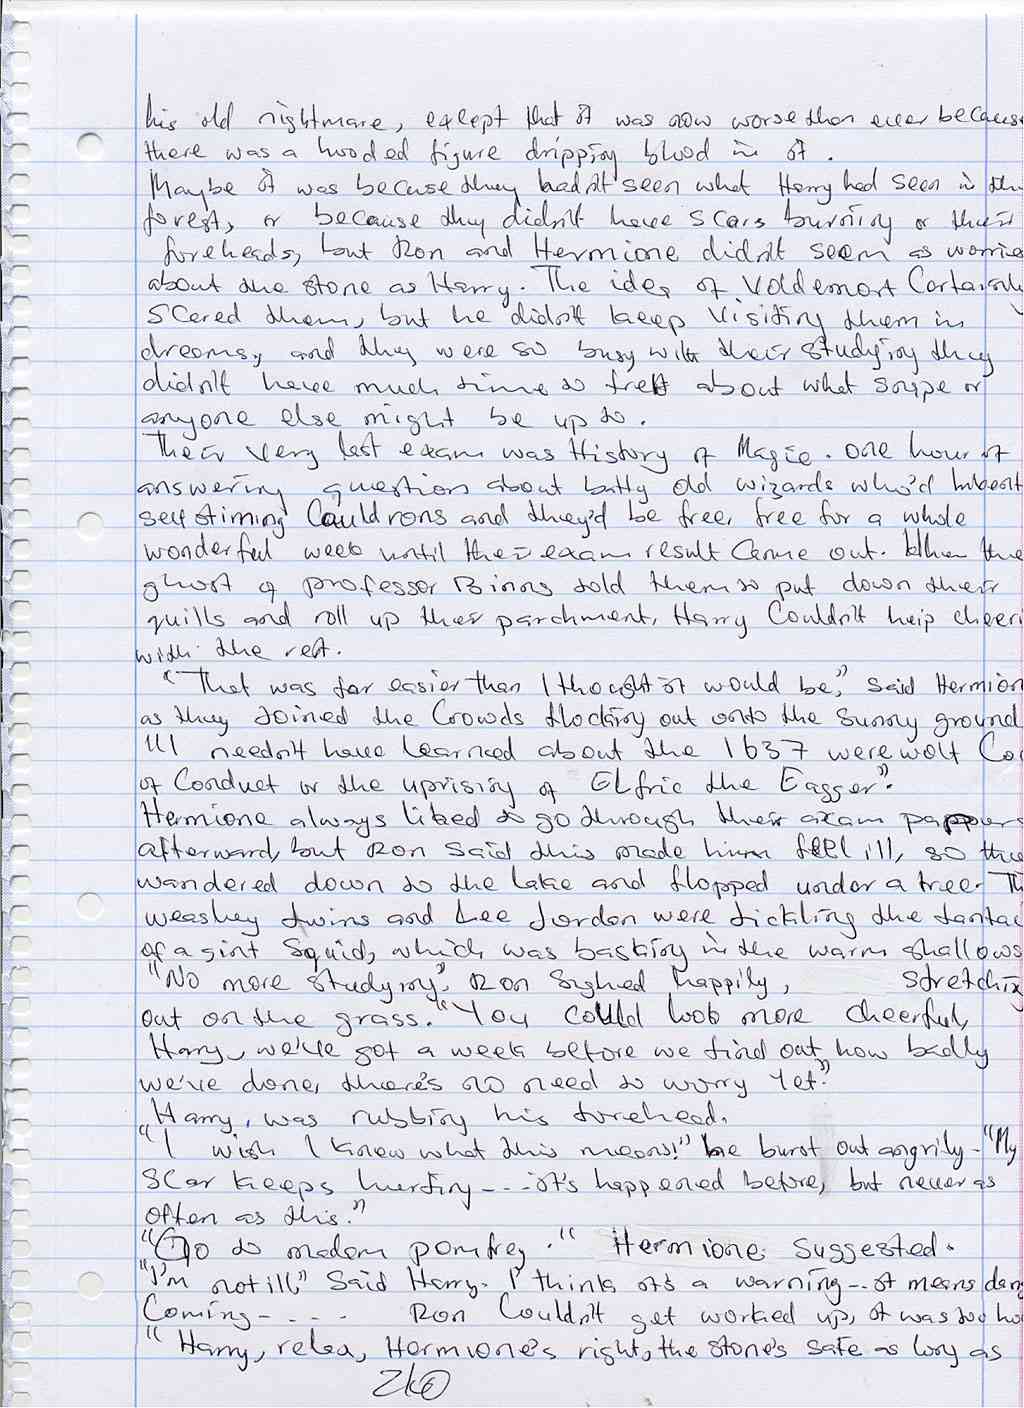 his old nightmare, except that it was now worse than ever because
there was a hooded figure dripping blood in it.
Maybe it was because they hadn't seen what Harry had seen in the
forest, or because they didn't have scars burning or their
foreheads, but Ron and Hermione didn't seem as worrie
about the stone as Harry. The idea of Voldemort Certainly
Scared them, but he didn't keep visiting them in
dreams, and they were so busy with their studying they
didn't have much time to fret about what Snape or
anyone else might be up to.
Their very last exam was History of Magic. One hour of
answering question about batty old wizards who'd
self stiming Cauldrons and they'd be free, free for a whole
wonderful week until their exam result came out. When the
ghost of professor Binns told them to put down their
quills and roll up their parchment, Harry Couldn't help cheeri
with the rest.
"That was far easier than I thought it would be," Said Hermion
as they Joined the Crowds flocking out onto the Sunny ground
"I needn't have learned about the 1637 werewolf Co
of Conduct or the uprising of Elfric the Eagger."
Hermione always liked to go through their exam pappers
afterward, but Ron Said this made him feel ill, so the
wandered down to the lake and flopped under a tree. Th
weasley twins and Lee Jordon were tickling the tentac
of a gint Squid, which was basking in the warm shallows
"No more studying", Ron Sighed happily, stretchin
out on the grass. "You could look more cheerful,
Harry, we've got a week before we find out how badly
we've done, there's no need to worry Yet."
Harry, was rubbing his forehead.
"I wish I knew what this means!" he burst out angrily - "My
Scar keeps hurting --- it's happened before, but never as
often as this."
"Go to madam pomfrey." Hermione suggested.
"I'm not ill," Said Harry. I think it's a warning -- it means dan
Coming - . . . Ron Couldn't get worked up, it was too ho
"Harry, relax, Hermione's right, the stone's safe as long as